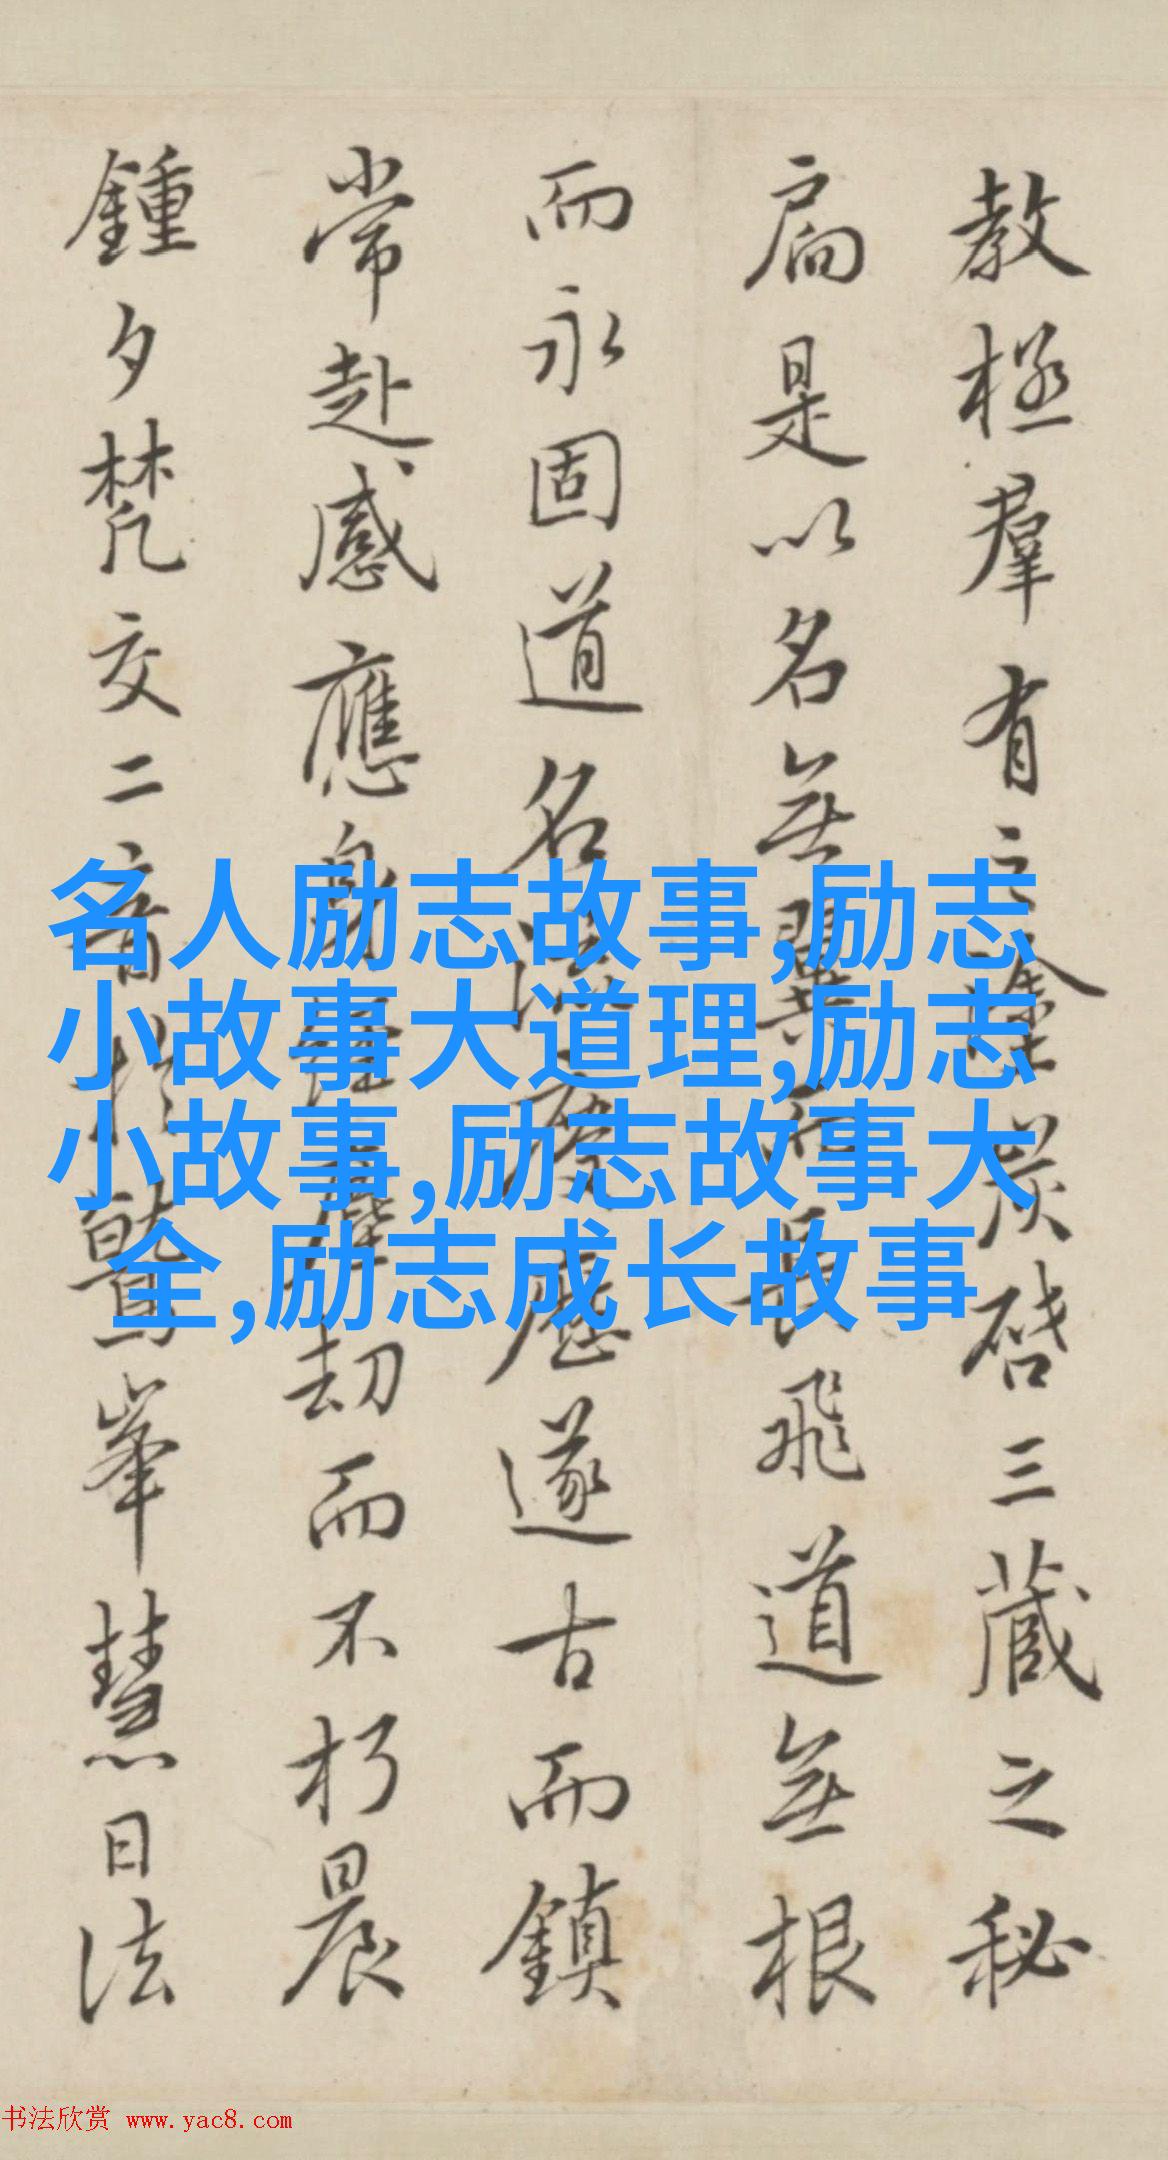 教極羣有之塗炭啓三藏之秘
扃是以名無翼而長飛道無根
而永固道名流慶歷遂古而鎮
常赴感應身經塵劫而不朽晨
鍾夕梵交二音於鷲峯慧日法
名人励志故事,励志
小故事大道理,励志
小故事,励志故事大
全,励志成长故事
书法欣赏 www.yac8.com